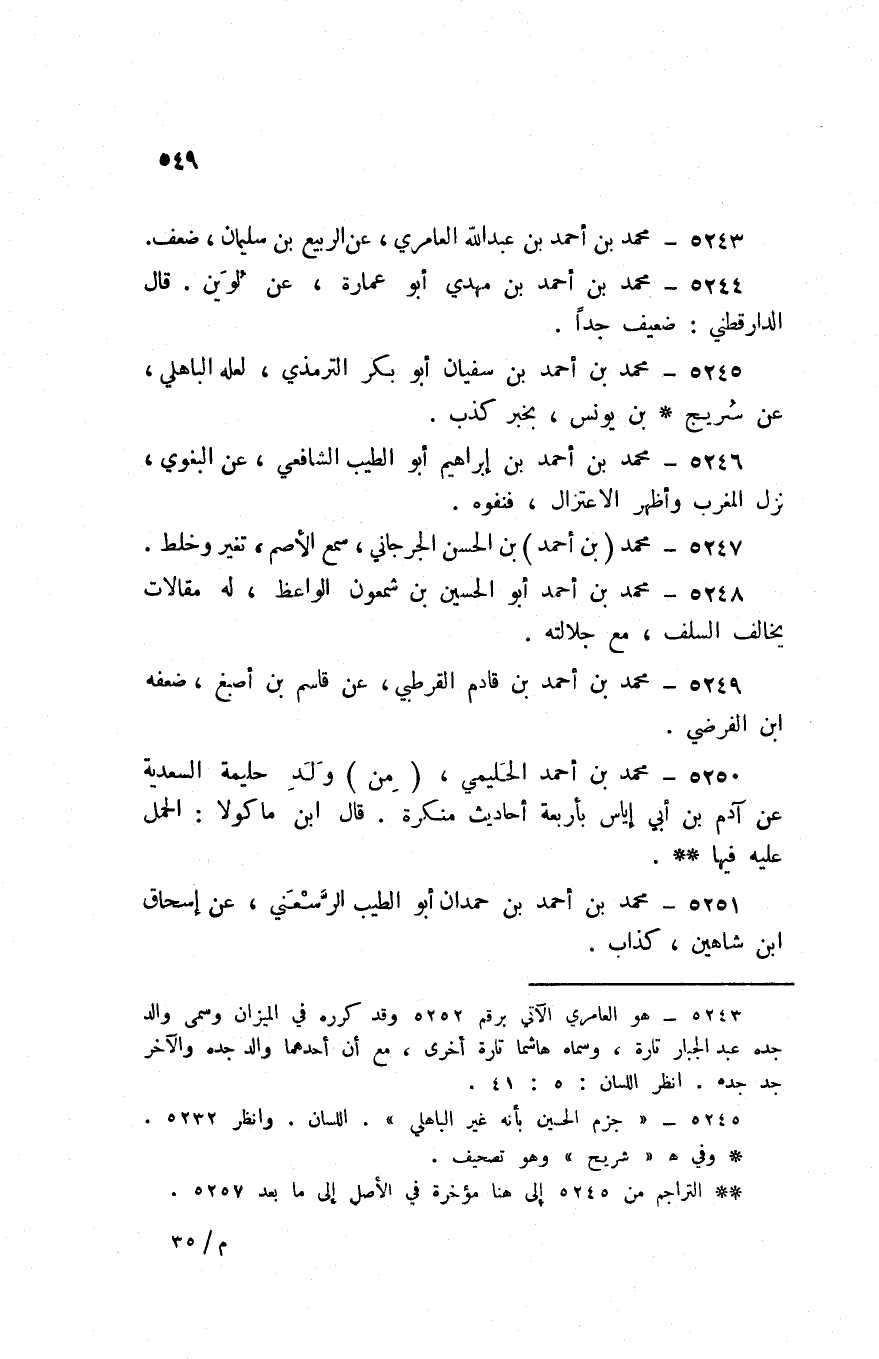 ٥٤٩
٥٢٤٣ – محمد بن أحمد بن عبدالله العامري ، عن الربيع بن سليمان ، ضعف.
٥٢٤٤ – محمد بن أحمد بن مهدي أبو عمارة ، عن لُوَين . قال
الدارقطني : ضعيف جداً .
٥٢٤٥ – محمد بن أحمد بن سفيان أبو بكر الترمذي ، لعله الباهلي ،
عن سُريج * بن يونس ، بخبر كذب .
٥٢٤٦ – محمد بن أحمد بن إبراهيم أبو الطيب الشافعي ، عن البغوي ،
نزل المغرب وأظهر الاعتزال ، فنفوه .
٥٢٤٧ – محمد ( بن أحمد ) بن الحسن الجرجاني ، سمع الأصم ، تغير وخلط .
٥٢٤٨ – محمد بن أحمد أبو الحسين بن شمعون الواعظ ، له مقالات
يخالف السلف ، مع جلالته .
٥٢٤٩ – محمد بن أحمد بن قادم القرطبي ، عن قاسم بن أصبغ ، ضعفه
ابن الفرضي .
٥٢٥٠ – محمد بن أحمد الحَليمي ، ( مِن ) وَلَدِ حليمة السعدية
عن آدم بن أبي إياس بأربعة أحاديث منكرة . قال ابن ماكولا : الحمل
عليه فيها ** .
٥٢٥١ – محمد بن أحمد بن حمدان أبو الطيب الرَّسْعَني ، عن إسحاق
ابن شاهين ، كذاب .
٥٢٤٣ – هو العامري الآتي برقم ٥٢٥٢ وقد كرره في الميزان وسمى والد
جده عبد الجبار تارة ، وسماه هاشما تارة أخرى ، مع أن أحدهما والد جده والآخر
جد جده . انظر اللسان : ٥ : ٤١ .
٥٢٤٥ – « جزم الحسين بأنه غير الباهلي » . اللسان . وانظر ٥٢٣٢ .
* وفي ه « شريح » وهو تصحيف .
** التراجم من ٥٢٤٥ إلى هنا مؤخرة في الأصل إلى ما بعد ٥٢٥٧ .
م / ٣٥